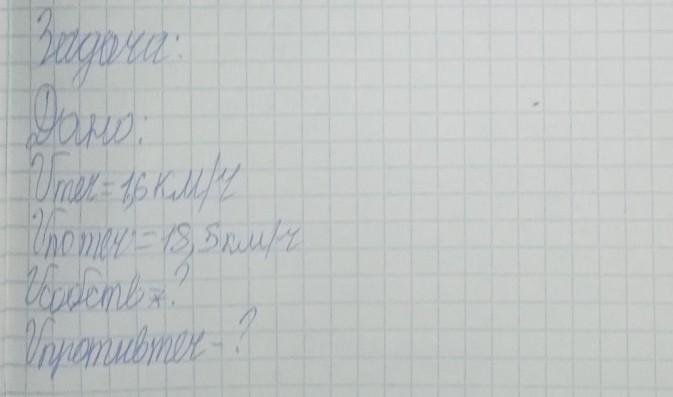 Задача:
Дано:
Vтеч=1,6км/ч
Vпо теч=18,5км/ч
Vсобств=?
Vпротивтеч-?